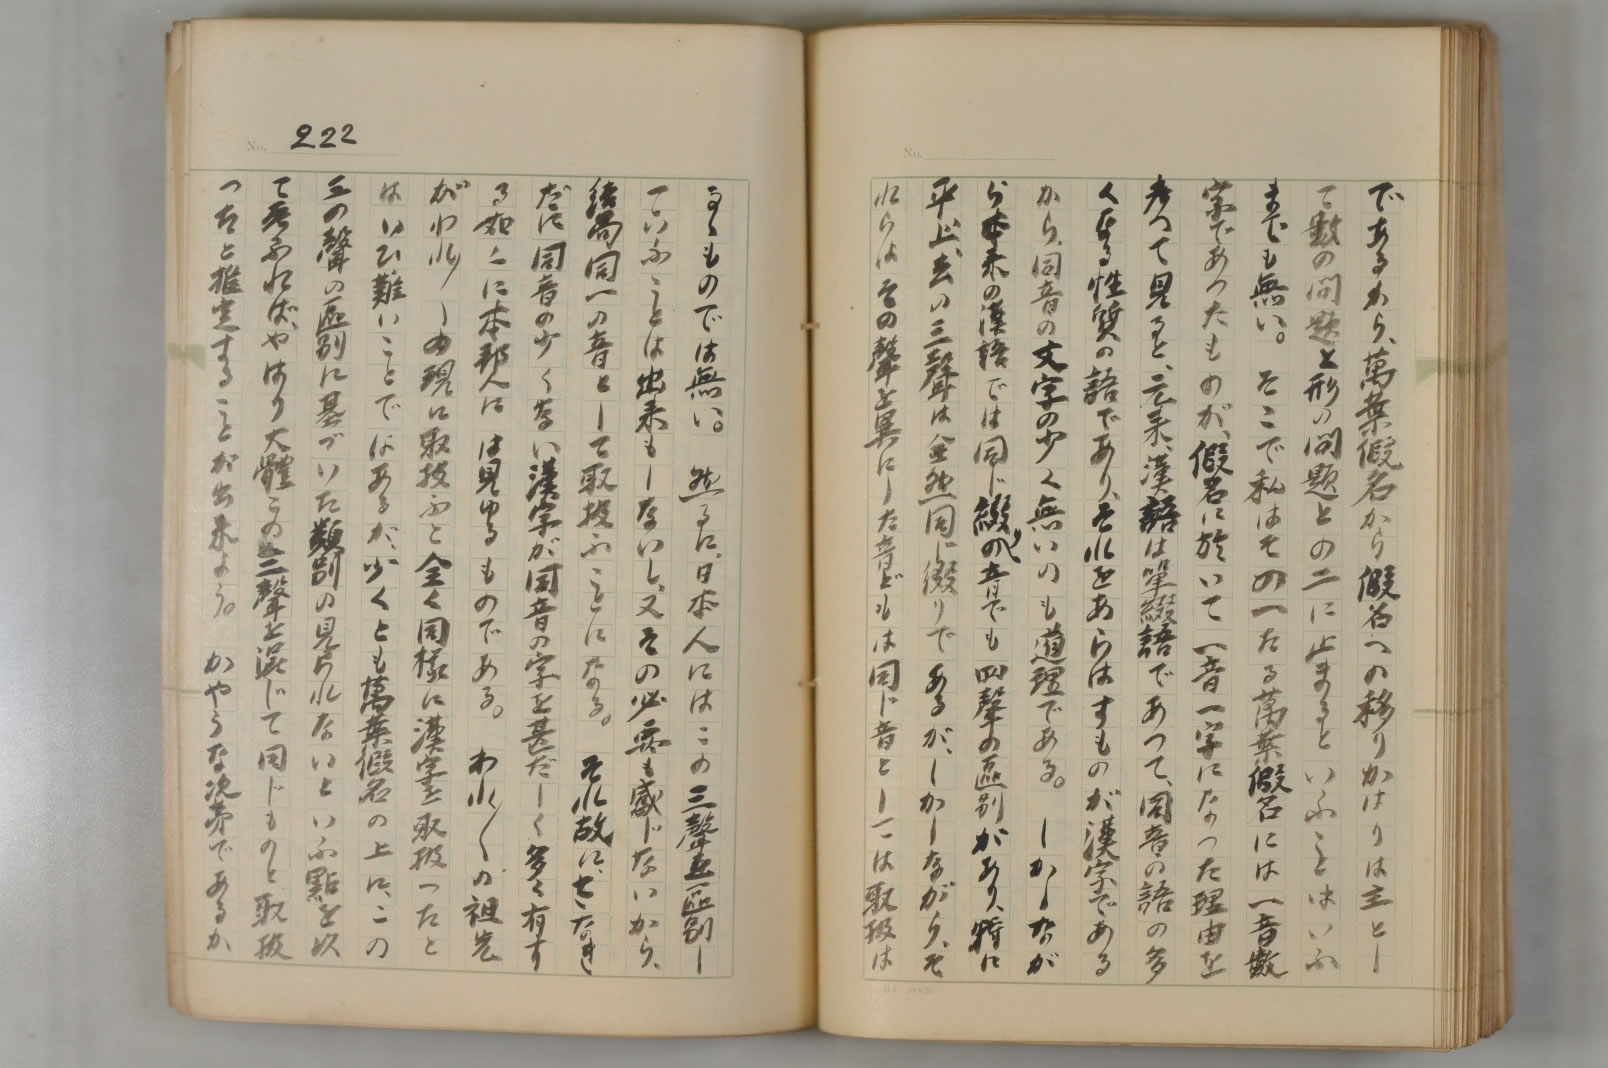 No.
であるから、萬葉假名から假名への移りかはりは主とし
て數の問題と形の問題との二に止まるといふことはいふ
までも無い。そこで私はその一たる萬葉假名には一音數
字であつたものが、假名に於いて一音一字になつた理由を
考へて見ると、元來、漢語は單綴語であつて、同音の語の多
くなる性質の語であり、それをあらはすものが漢字である
から、同音の文字の少く無いのも道理である。しかしなが
ら本來の漢語では同じ綴の音でも四聲の區別があり、特に
平、上、去の三聲は全然同じ綴りであるが、しかしながら、そ
れらはその聲を異にした音どもは同じ音としては取扱は
No. 222
るゝものでは無い。然るに、日本人にはこの三聲を區別し
ていふことは出來もしないし、又その必要も感じないから、
結局同一の音として取扱ふことになる。それ故に、
だに同音の少くない漢字が同音の字を甚だしく多く有す
る如くに本邦人には見ゆるものである。われ〳〵の祖先
がわれ〳〵の現に取扱ふと全く同樣に漢字を取扱つたと
はいひ難いことではあるが、少くとも萬葉假名の上に、この
三の聲の區別に基づいた類別の見られないといふ點を以
て考ふれば、やはり大體この三聲を混じて同じものと取扱
つたと推定することが出來よう。かやうな次第であるか